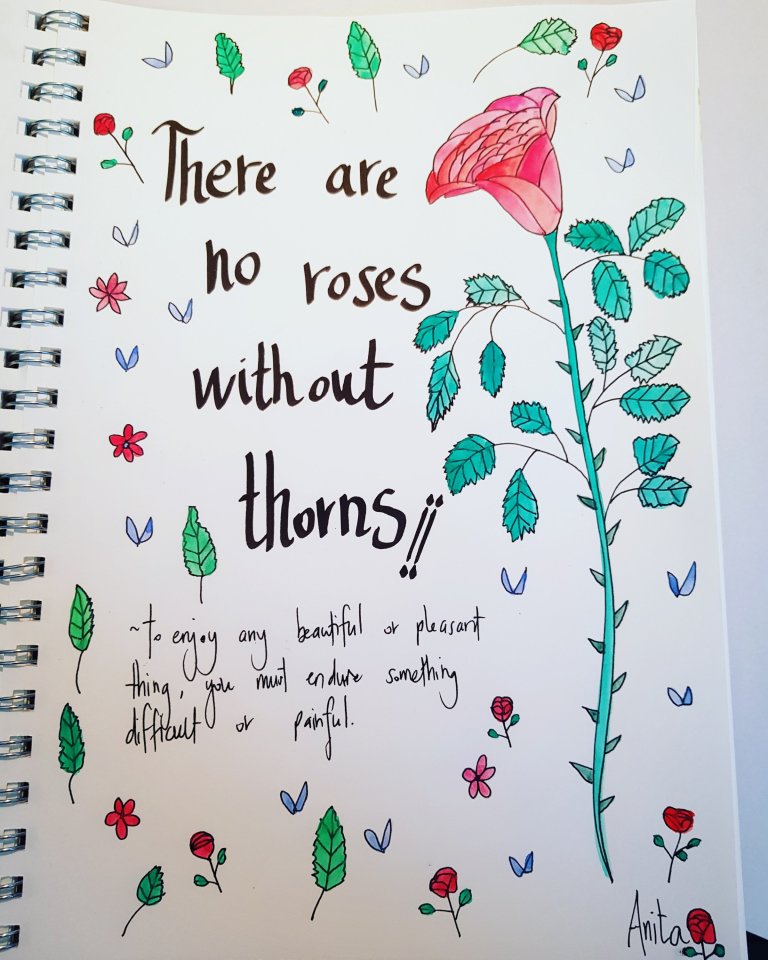 There are
no roses
without
thorns!!
~to enjoy any beautiful or pleasant
thing, you must endure something
difficult or painful.
Anita